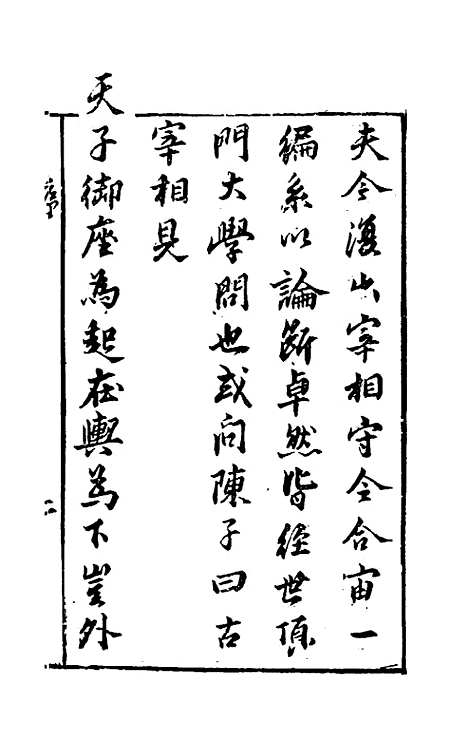 夫今復出宰相守令合宙一
編系以論斷卓然皆經世頂
門大學問也或问陳子曰古
宰相見
天子御座為起在輿為下豈外
序
二